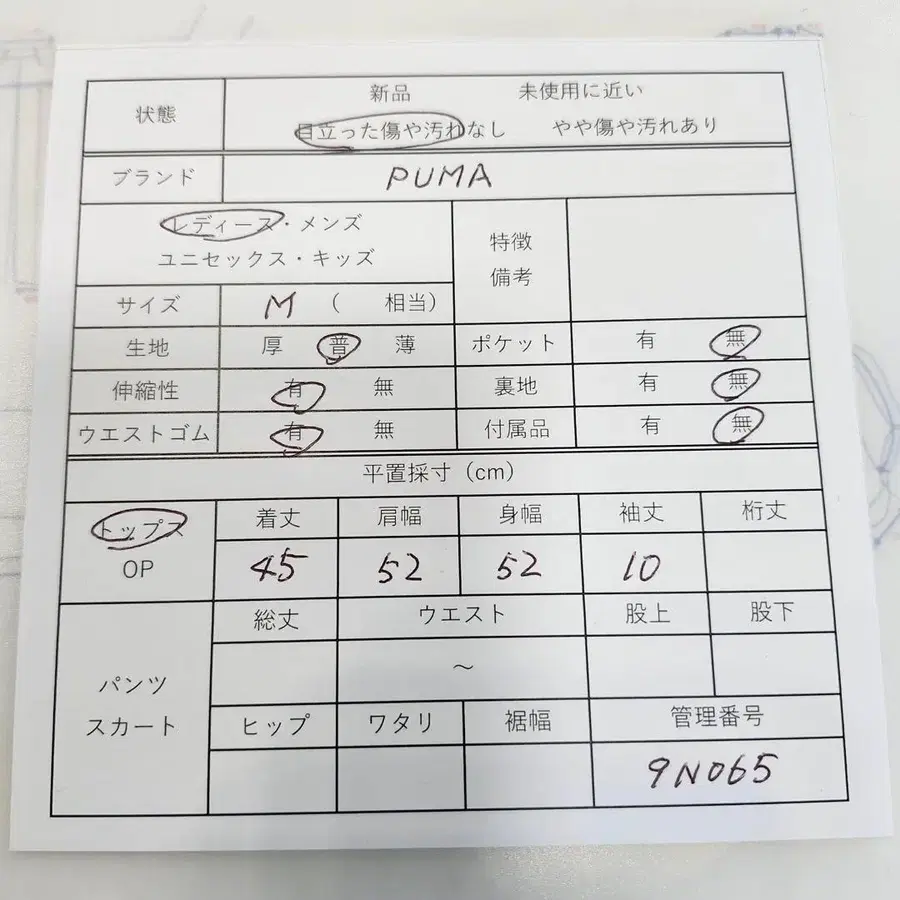 状態
新品 未使用に近い
目立った傷や汚れなし やや傷や汚れあり
ブランド PUMA
レディース・メンズ
ユニセックス・キッズ
特徴
備考
サイズ M ( 相当)
生地 厚 普 薄 ポケット 有 無
伸縮性 有 無 裏地 有 無
ウエストゴム 有 無 付属品 有 無
平置採寸(cm)
トップス
OP
着丈 肩幅 身幅 袖丈 裄丈
45 52 52 10
パンツ
スカート
総丈 ウエスト 股上 股下
~
ヒップ ワタリ 裾幅 管理番号
9N065